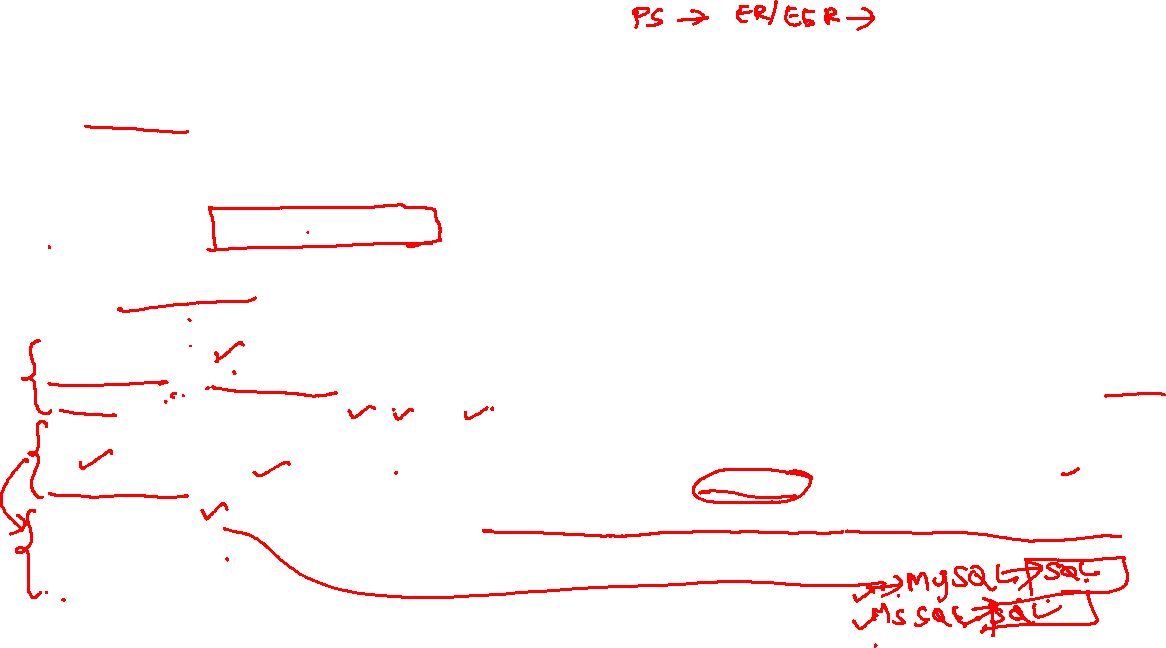 PS → ER/EER →
MySQL → SQL
MSSQL → SQL